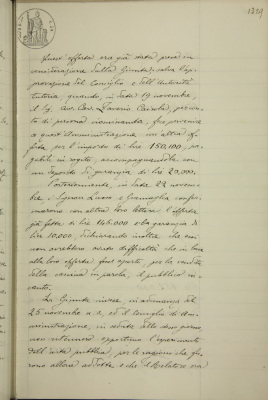 1829
Quest'offerta era già stata presa in
considerazione dalla Giunta, salva l'ap-
provazione del Consiglio e dell'Autorità
tutoria, quando, in data 19 novembre,
il Sig. Avv. Cav.
di persona nominanda, fu
a quest'Amministrazione un'altra of-
ferta per l'importo di lire 150,100, pa-
gabili in rogito, accompagnandola con
un deposito di garanzia di lire 20,000.
Posteriormente, in data 22 novem-
bre, i Signori e confer-
marono con altra loro lettera l'offerta
già fatta di lire 145.000 e la garanzia di
lire 20,000, dichiarando inoltre che
non avrebbero avuto difficoltà che in base
alla loro offerta fosse aperto, per la vendita
della cascina in parola, il pubblico in-
canto.
La Giunta invece in adunanza del
25 novembre e il Consiglio di Am-
ministrazione, in seduta dello stesso giorno,
non ritennero opportuno l'esperimento
dell'asta pubblica, per le ragioni che fu-
rono allora addotte e che il Relatore ora